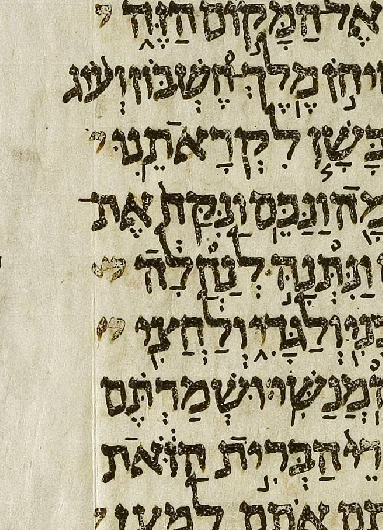 אֶל־הַמָּקוֹם הַזֶּה
יחֹן מֶלֶךְ־חֶשְׁבּוֹן וְעוֹג
בָּשָׁן לִקְרָאתֵנוּ
מָה וַנַּכֵּם׃ וַנִּקַּח אֶת־
וַנִּתְּנָהּ לְנַחֲלָה
בֵנִי וְלַגָּדִי וְלַחֲצִי
מְנַשִּׁי׃ וּשְׁמַרְתֶּם
רֵי הַבְּרִית הַזֹּאת
תֶם אֹתָם לְמַעַן